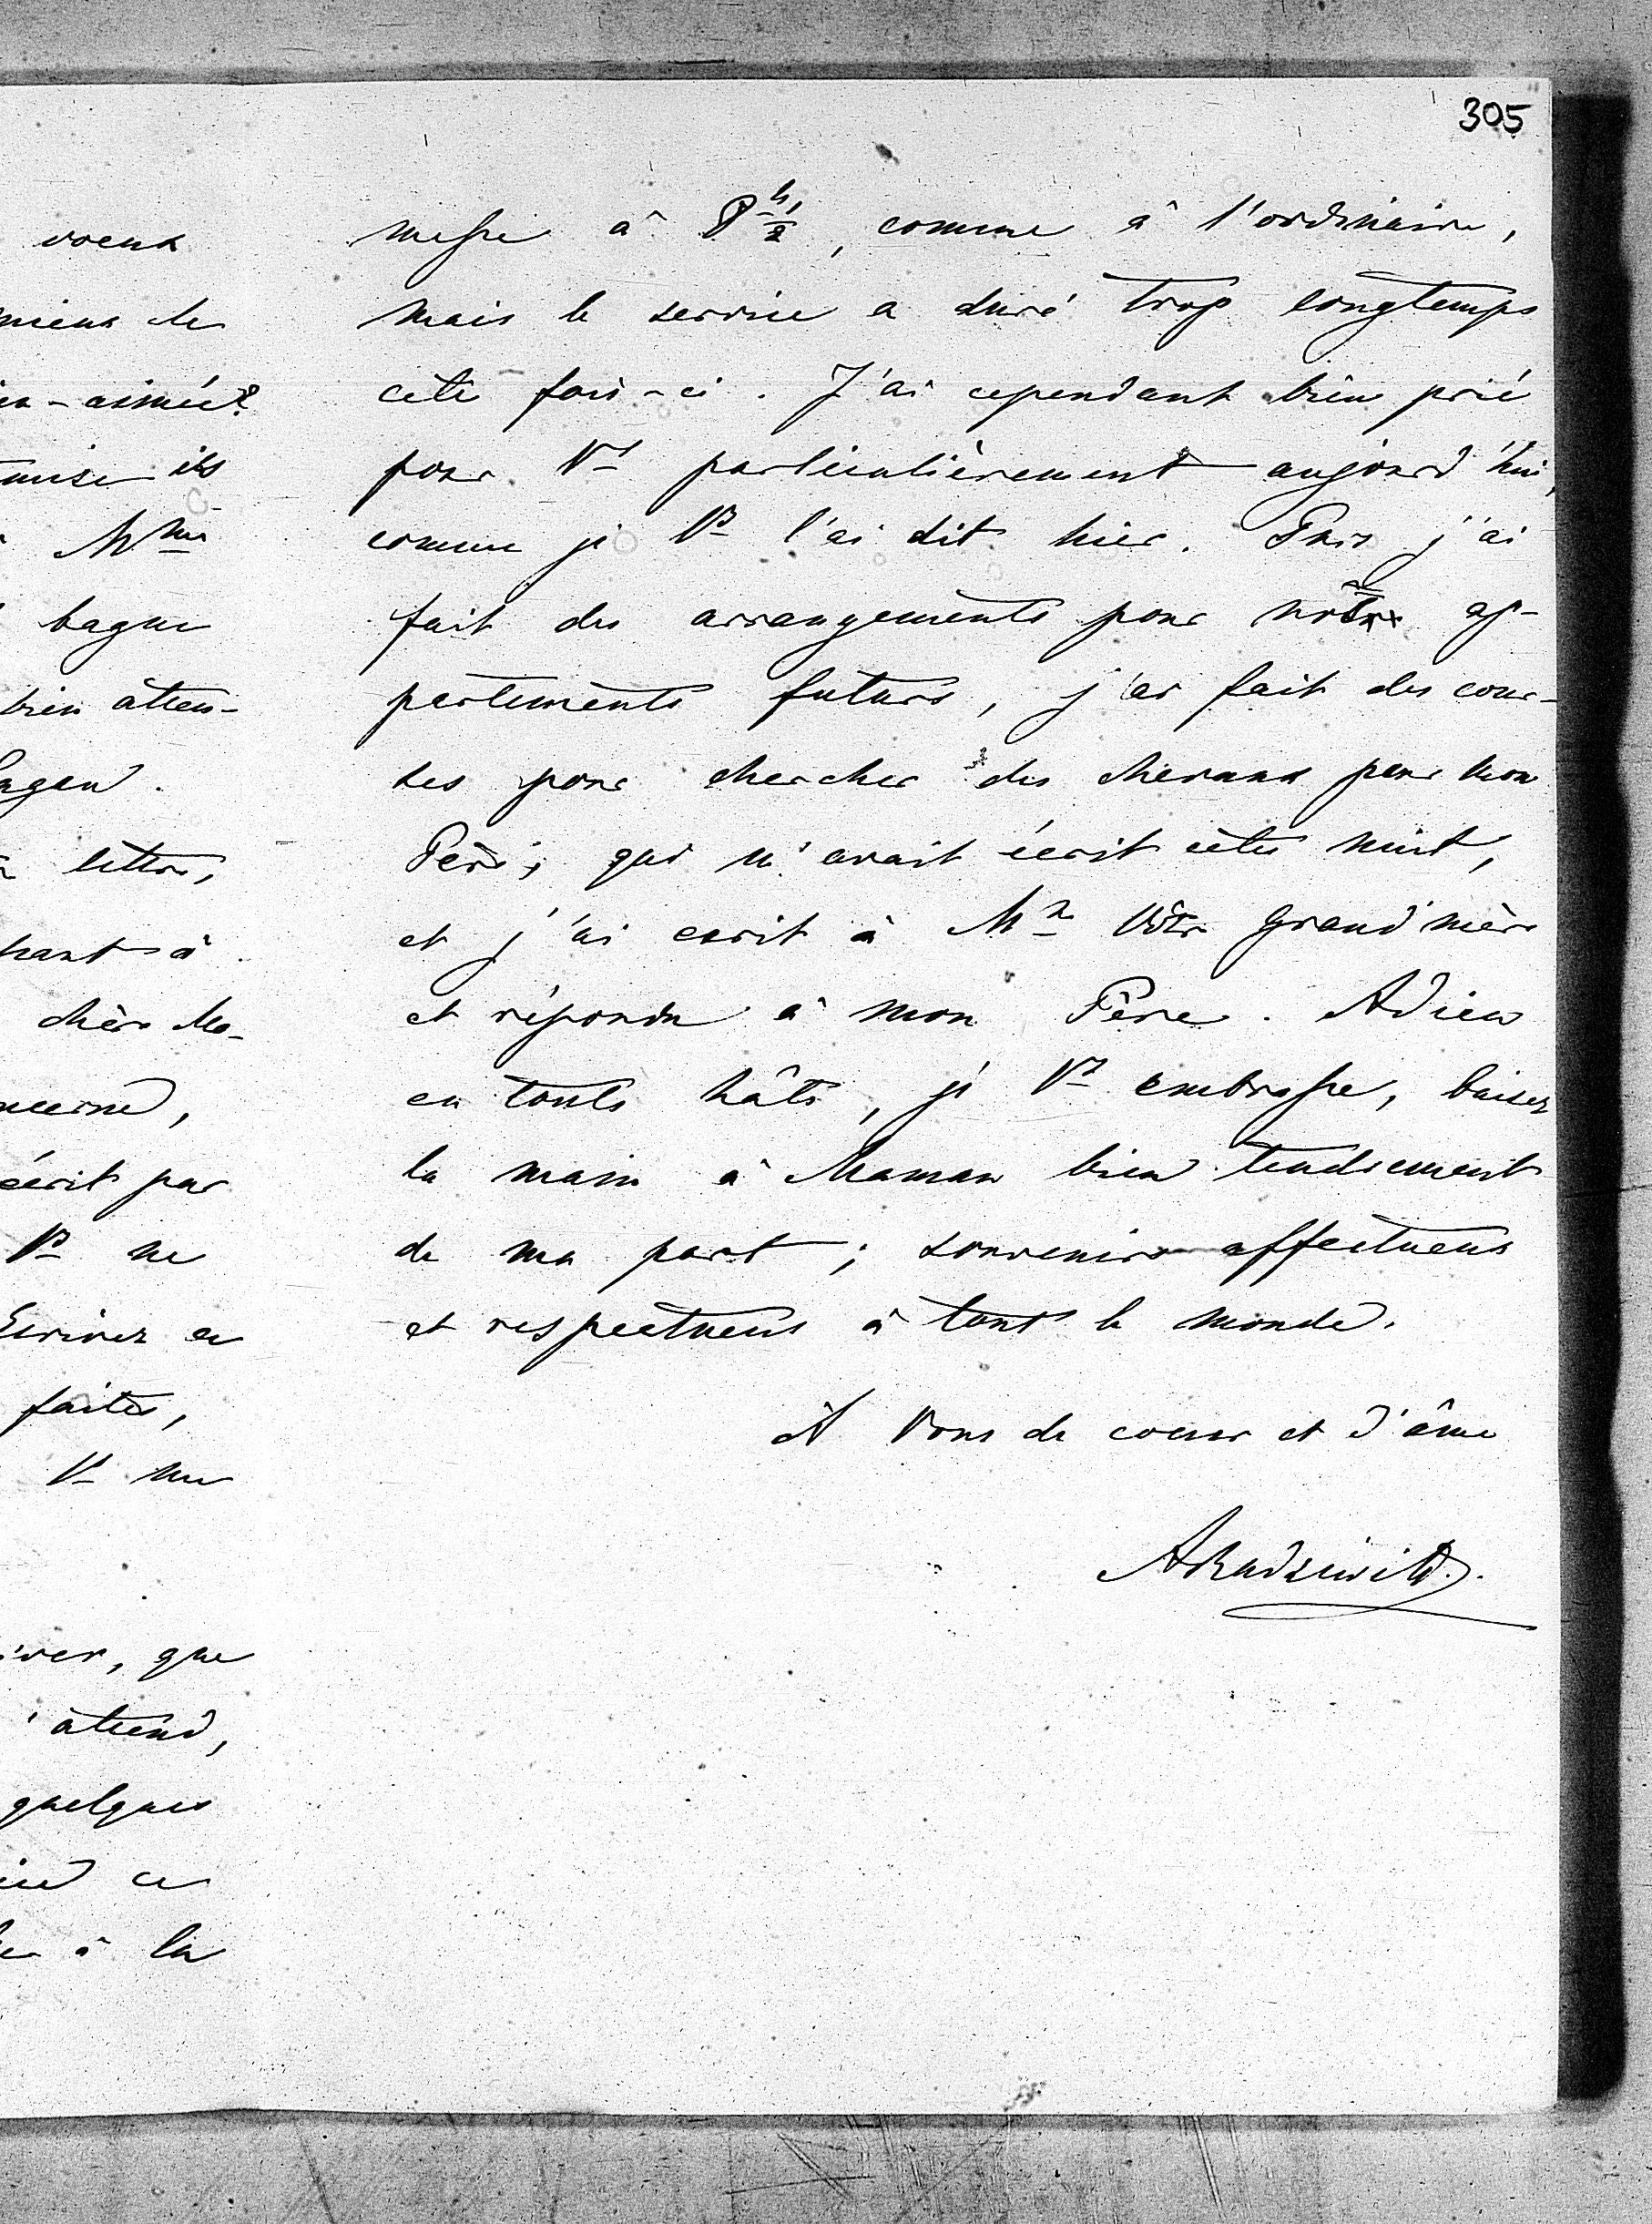 305
voeux
mieux de
en-aimée?
ils
Mme
bague
bien âtten-
lettre,
chère Ma-
écrit par
Vs ne
Ecrivez en
faites,
Vs me
iver, que
âttend,
quelques
à la
messe à 8 h 1/2, comme à l'ordinaire,
mais le service a duré trop longtemps
cète fois-ci. J'ai cependant bien prié
pour Vs particulièrement aujourd'hui,
comme je Vs l'ai dit hier. Puis j'ai
fait des arrangements pour nôtre ap-
partements futurs, j'ai fait des cour-
ses pour chercher des chevaux pour mon
Père, qui m'avait écrit cète nuit,
et j'ai écrit à Me Vôtre Grand'mère
et répondu à mon Père. Adieu
en toute hâte, je Vs embrasse, baisez
la main à Maman bien tendrement
de ma part; souvenirs affectueux
et respectueux à tout le monde.
A Vous de coeur et d'âme
ARadziwill.